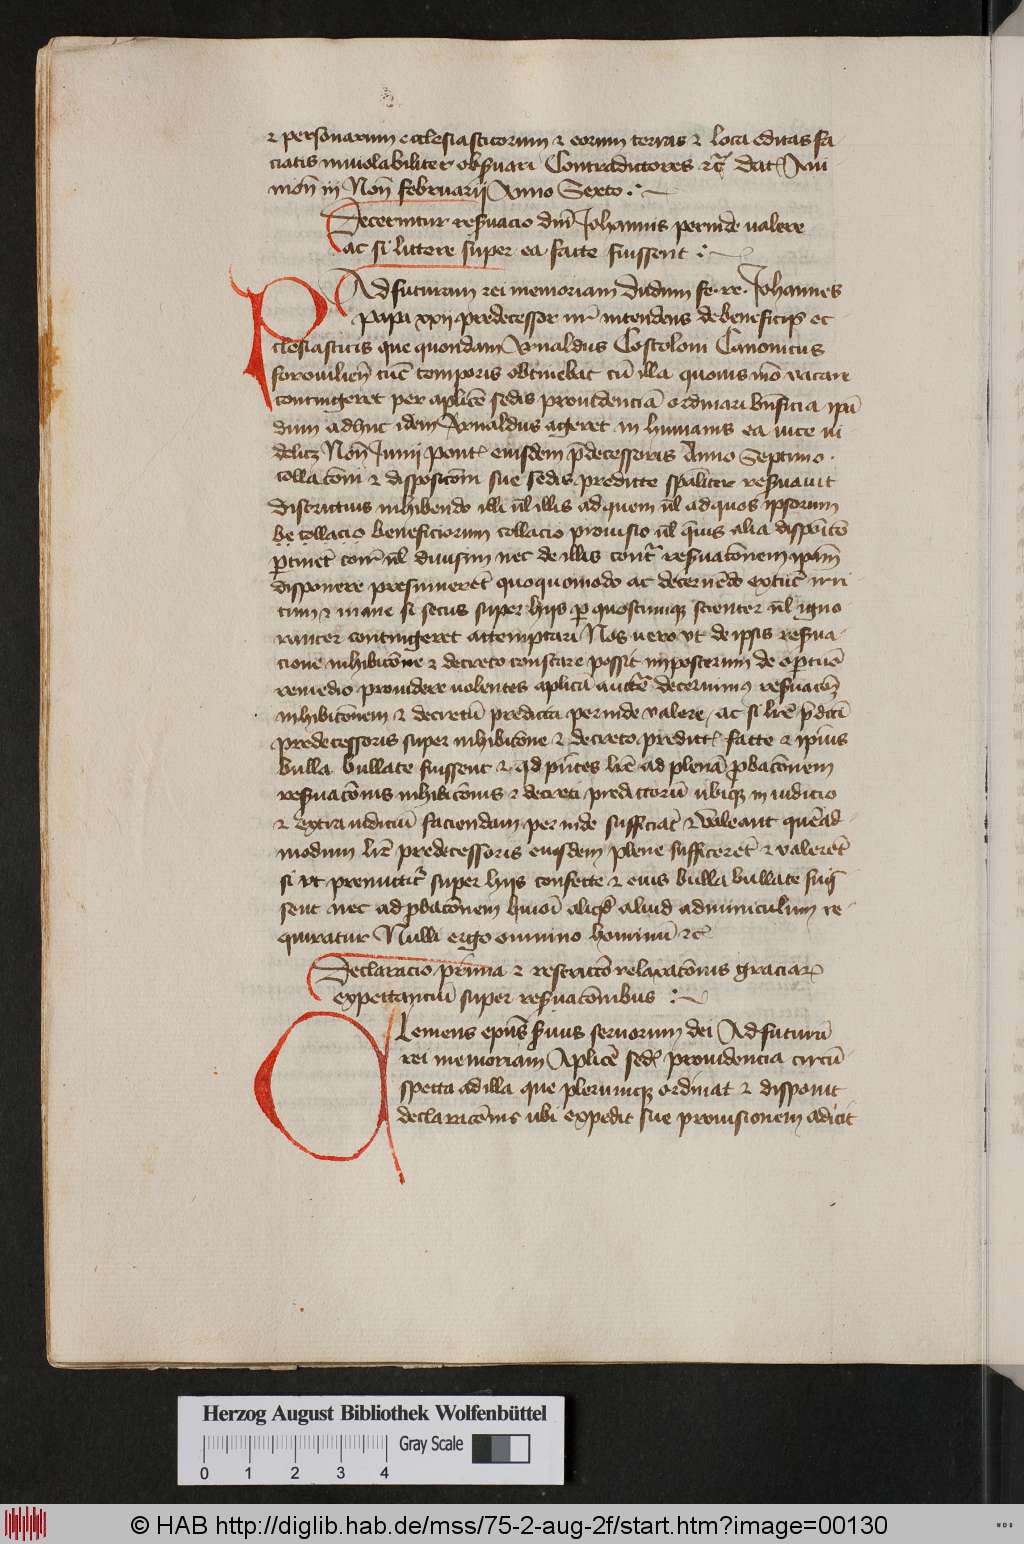 et personarum ecclesiasticorum et eorum terras et loca editas fa-
ciatis inviolabiliter obſvari Contradictores etc̄ Dat. Avi
nion̄ iij Non̄ februarij Anno Sexto
Decernitur reſvacio dn̄i Johannis perinde valere
ac si littere super ea facte fuissent
Ad futuram rei memoriam Dudum fe. re. Johannes
Papa xxij predecessor nr̄ intendens de beneficijs ec
clesiasticis que quondam Arnaldus Costoloni Canonicus
forouilien̄ tūc temporis obtinebat cū illa quovis mō vacare
contingeret per aplice sedis providenciā ordinari bn̄ficia ipā
dum adhuc idem Arnaldus ageret in humanis ea vice vi
delicz Non̄ Junij Pont. eiusdem p̄decessoris Anno Septimo
collacōni et disposicōni sue sedis predicte sp̄aliter reſvavit
Districtius inhibendo illi vl̄ illis ad quem vl̄ ad quos ipsorum
be collacio beneficiorum collacio provisio vl̄ q̄vis alia disposicō
ꝑtinet cōīr vl̄ divisim nec de illis cont̄ reſvacōnem ipām
disponere presumerēt quoquomodo ac decernēdo extūc irri
tum et inane si secus super hijs ꝑ quoscumque scienter vl̄ igno
ranter contingeret attemptari Nos vero ut de ipsis reſva-
cione inhibicōne et decreto constare possit imposterum de oꝑtūē
remedio providere volentes aplicā auctē decernimus reſvacōꝫ
inhibicōnem et decretū predicta perinde valere, ac si lr̄e p̄dicti
predecessoris super inhibicōne et decreto predict. facte et ipius
bulla bullate fuissent et qd p̄ntes lr̄e ad plenā ꝓbacōnem
reſvacōnis inhibicōnis et decreti predictorū ubique in iudicio
et extra iudiciū faciendam perinde sufficiāt et valeant quēad
modum lr̄e predecessoris eiusdem plene sufficerēt et valerēt
si ut premittit̄ super hijs confecte et eius bulla bullate fuis
sent nec ad ꝓbacōnem huiōī aliqd aliud adminiculum re-
quiratur Nulli ergo omnino hominū etc̄
Declaracio prima et restrictō relaxacōnis graciaꝝ
expectanciū super reſvacōnibus
Clemens epūs ſvus servorum dei Ad futurā
rei memoriam Aplicē sed. providencia circū
specta ad illa que plerumque ordinat et disponit
declaracōnis ubi expedit sue provisionem adicit
Herzog August Bibliothek Wolfenbüttel
Gray Scale
0 1 2 3 4
© HAB http://diglib.hab.de/mss/75-2-aug-2f/start.htm?image=00130